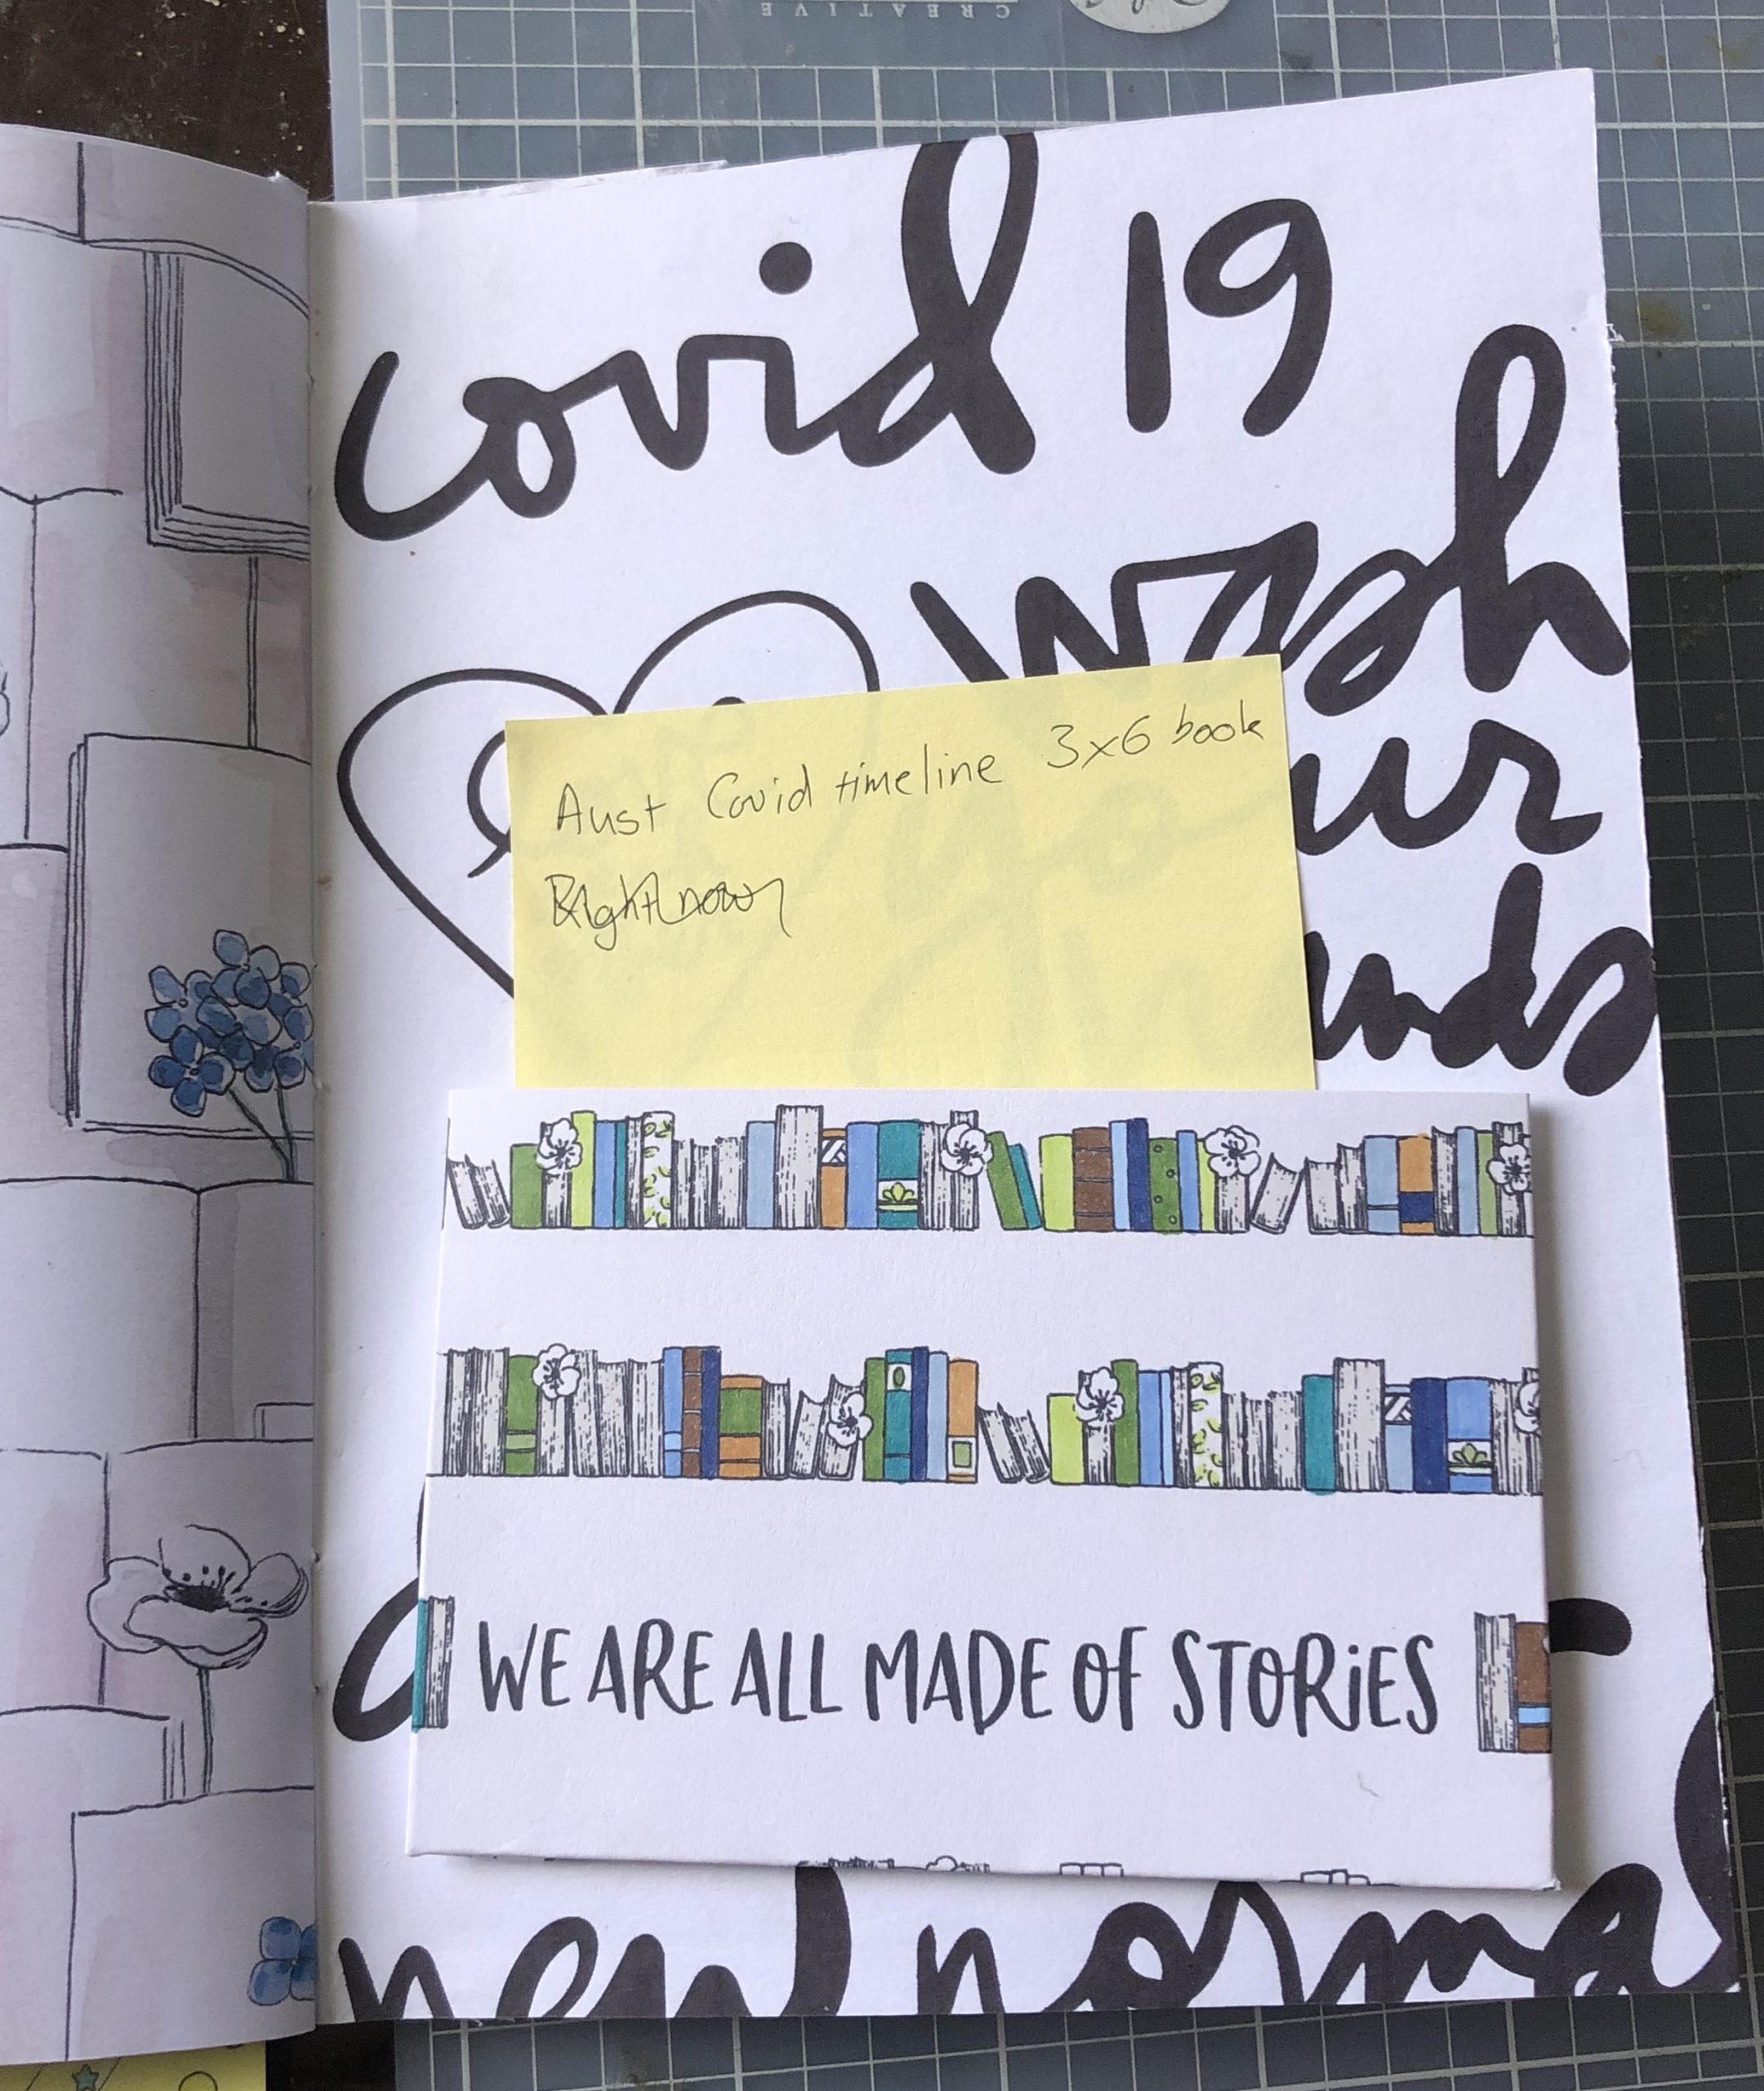 CREATIVE
covid 19
wash
ur
nds
Aust Covid timeline 3x6 book
Right now
WE ARE ALL MADE OF STORiES
new normal